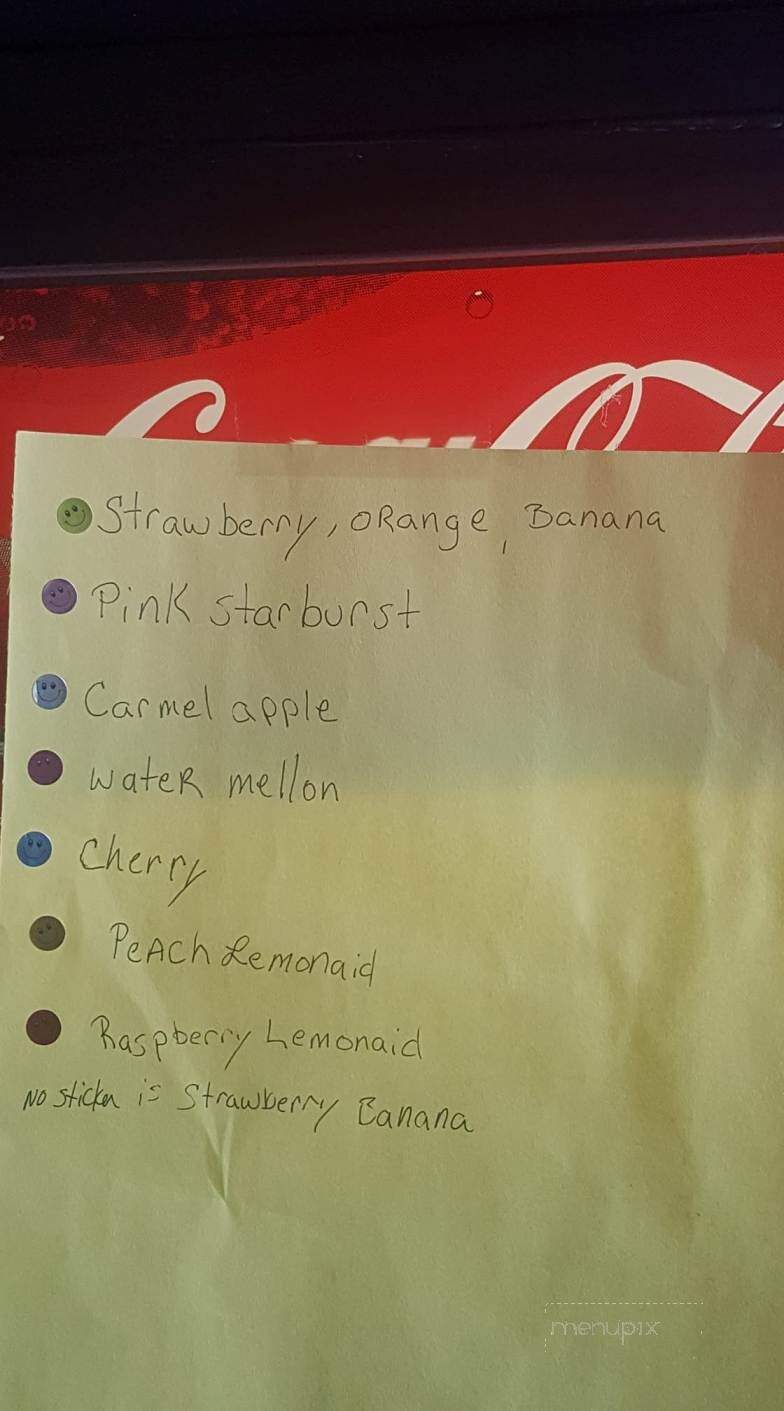 Strawberry, oRange, Banana
Pink starburst
Carmel apple
wateR mellon
Cherry
PeAch Lemonaid
Raspberry Lemonaid
No sticker is Strawberry Banana
menupix